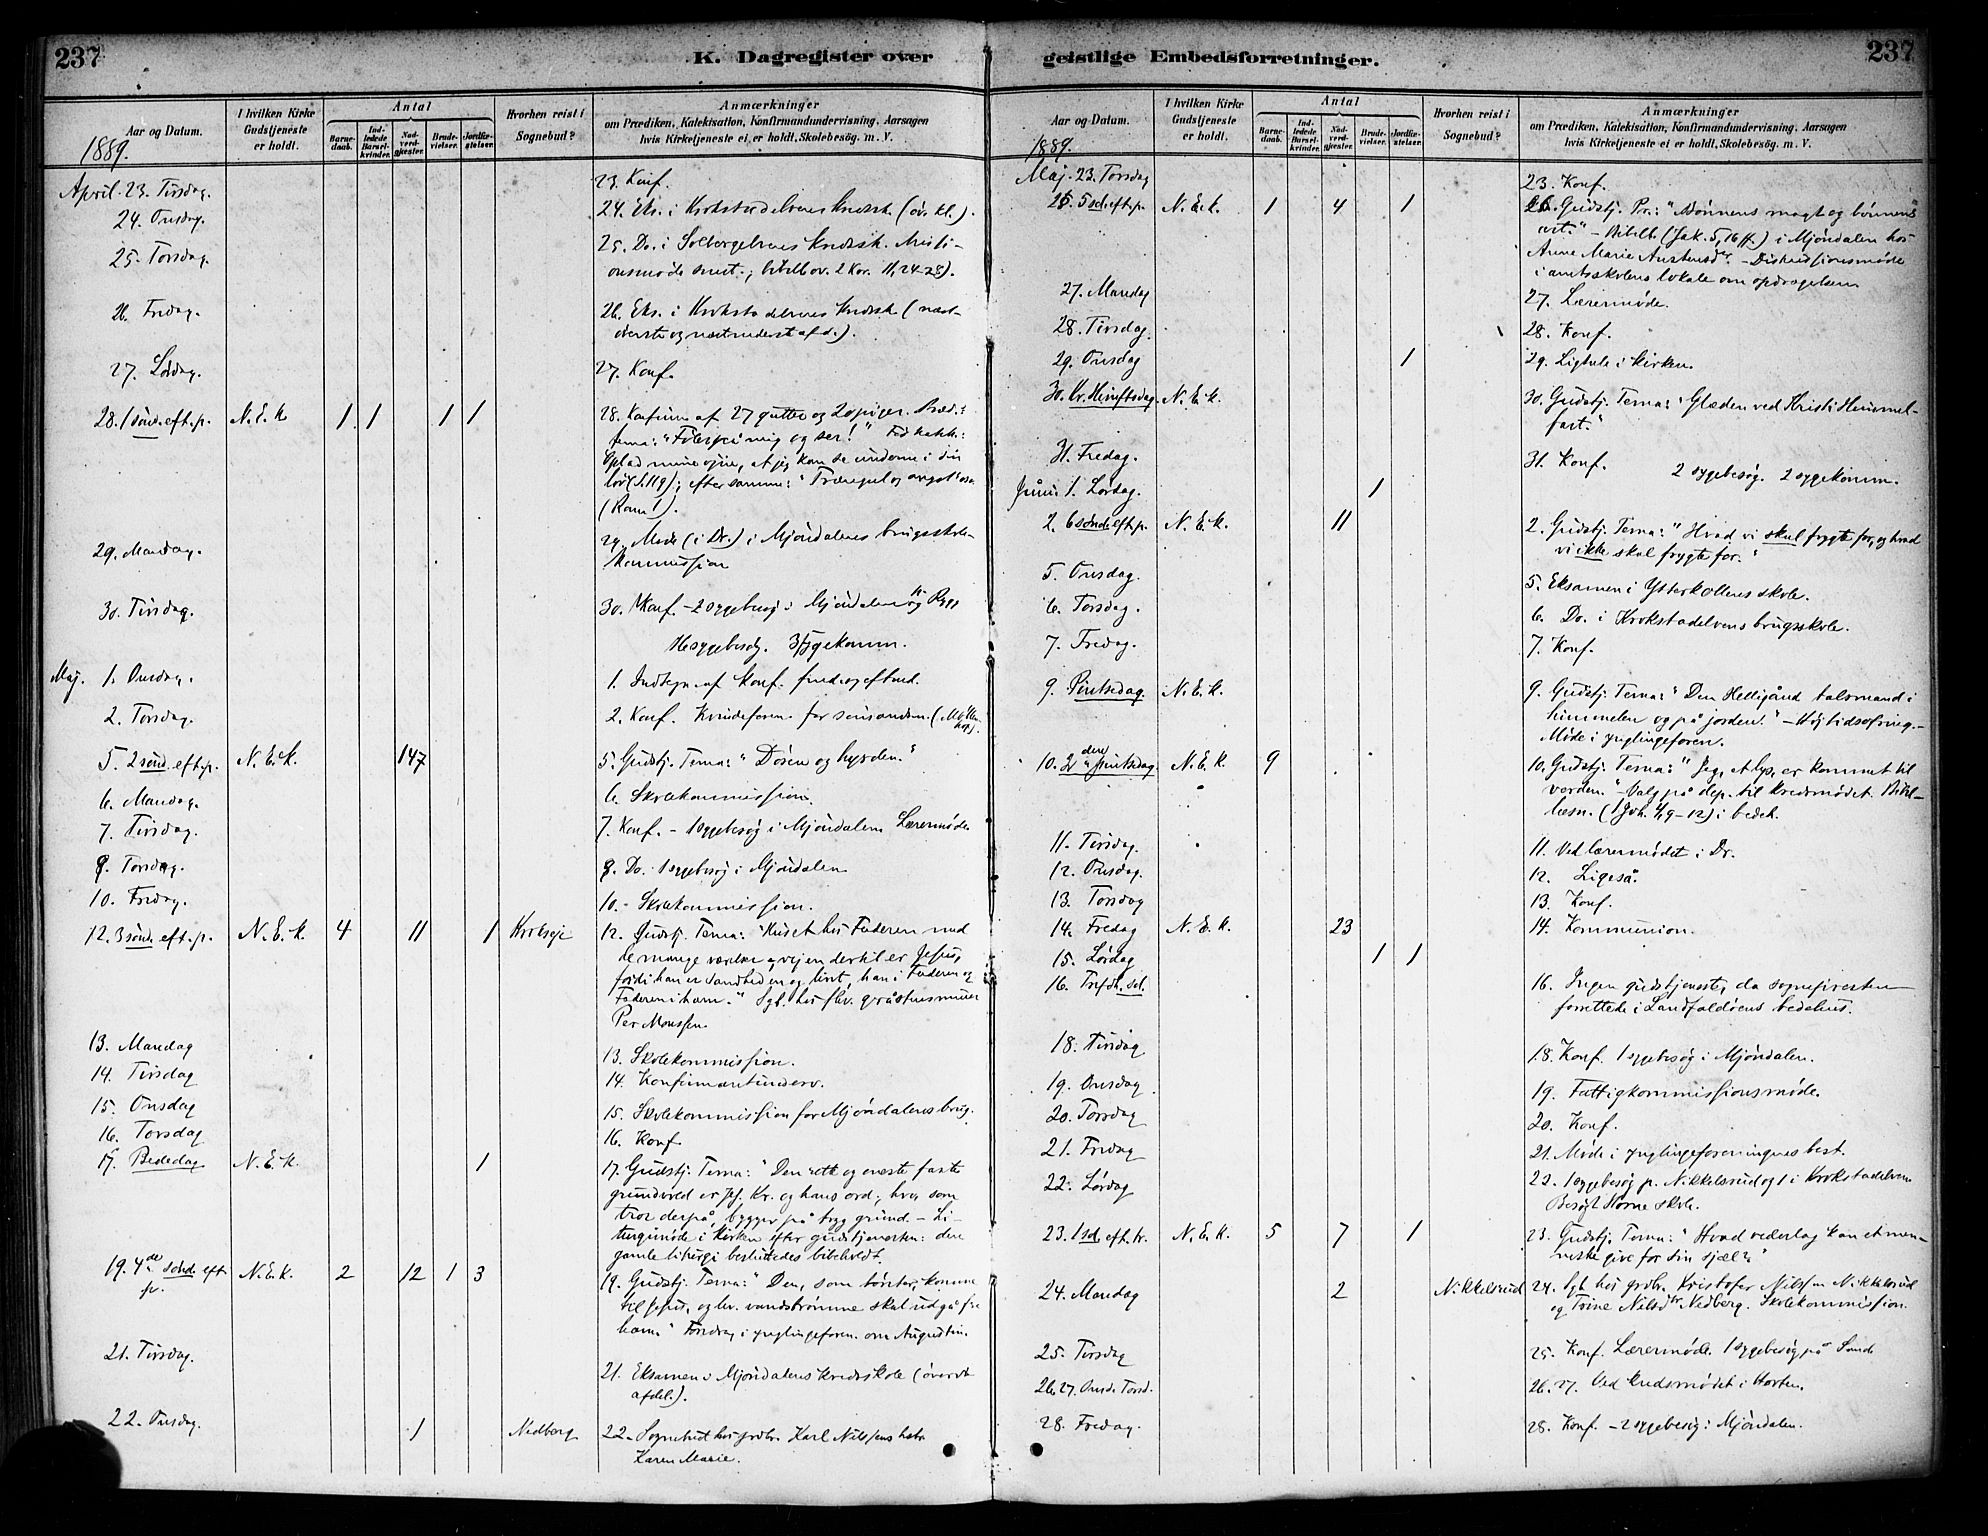 237
K. Dagregister over
Aar og Datum.
I hvilken Kirke Gudstjeneste er holdt.
Antal
Barnedaab.
Indledede Barselkvinder.
Nadverdgjæster.
Brudevielser.
Jordfæstelser.
Hvorhen reist i Sognebud?
Anmærkninger
om Prædiken, Katekisation, Konfirmandundervisning, Aarsagen
hvis Kirketjeneste ei er holdt, Skolebesög. m. V.
1889.
April. 23. Tirsdag. 23. Konf.
24. Onsdag. 24. Eks. i Krokstadelvens kredssk. (øv. kl.).
25. Torsdag. 25. Do. i Solbergelvens kredssk. Missi-
onsmøde smst.; bibell. ov. 2 Kor. 11, 24-28).
26. Fredag. 26. Eks. i Krokstadelvens kredssk. (næst-
øverste og næstnederst afd.).
27. Lørdag. 27. Konf.
28. 1 sønd. eft. p. N. E. K 1 1 1 1 28. Konfirm. af 27 gutter og 20 piger. Præd.:
tema: "Føler på mig og ser!" Før katek.:
Oplad mine øjne, at jeg kan se underne i din
lov (S. 119); efter samme:
(Rom 1).
29. Mandag. 29. Møde (i Dr.) i Mjøndalens brugsskole-
kommission
30. Tirsdag. 30. Konf. - 2 sygebesøg i Mjøndalen og Rygg
sygebesøg. 3 sygekomm.
Maj. 1. Onsdag. 1. Indtegn. af konf. form. og efterm.
2. Torsdag. 2. Konf. Kvindeforen. for
5. 2 sønd. eft. p. N. E. K. 147 5. Gudstj. Tema: "Døren og hyrden."
6. Mandag. 6. Skolekommission.
7. Tirsdag. 7. Konf. - 1 sygebesøg i Mjøndalen Lærermøde
9. Torsdag. 9. Do. 1 sygebesøg i Mjøndalen
10. Fredag. 10. - Skolekommission.
12. 3 sønd. eft. p. N. E. K. 4 11 1 12. Gudstj. Tema: "Huset hos Faderen med
de mange værelser, vejen dertil er Jesus,
fordi han er Sandheden og livet, han i Faderen og
Faderen i ham." Sgb. hos
Per Monssen.
13. Mandag 13. Skolekommission.
14. Tirsdag 14. Konfirmantunderv.
15. Onsdag 15. Skolekommission for Mjøndalens brug.
16. Torsdag 16. Konf
17. Bededag N. E. K. 1 17. Gudstj. Tema: "Den rette og eneste faste
grundvold er Jes. Kr. og hans ord; hver som
tror derpå, bygger på tryg grund. - Li-
turgimøde i kirken efter gudstjenesten: den
gamle liturgi besluttedes bibeholdt.
19. 4de sønd. eft p. N. E. K. 2 12 1 3 19. Gudstj. Tema: "Den, som tørster, komme
til Jesus, og lev. vandstrømme skal udgå fra
ham." Foredrag i ynglingeforen. om Augustin.
21. Tirsdag. 21. Eksamen i Mjøndalens kredsskole (øverste
afdel.).
22. Onsdag. 1 Nedberg 22. Sognebud hos grdbr. Karl Nilssens
Karen Marie.
237
geistlige Embedsforretninger.
Aar og Datum.
I hvilken Kirke Gudstjeneste er holdt.
Antal
Barnedaab.
Indledede Barselkvinder.
Nadverdgjæster.
Brudevielser.
Jordfæstelser.
Hvorhen reist i Sognebud?
Anmærkninger
om Prædiken, Katekisation, Konfirmandundervisning, Aarsagen
hvis Kirketjeneste ei er holdt, Skolebesög. m. V.
1889.
Maj. 23. Torsdag 23. Konf.
26. 5 sd. eft. p. N. E. K. 1 4 1 26. Gudstj. Pr.: "Bønnens magt og bønnens
art." - Bibell. (Jak. 5, 16 ff.) i Mjøndalen hos
Anne Marie - Diskussionsmøde
i amtsskolens lokale om opdragelsen
27. Mandag 27. Lærermøde.
28. Tirsdag. 28. Konf.
29. Onsdag 1 29. Ligtale i kirken.
30. Kr. Himftsdag. N. E. K. 30. Gudstj. Tema: "Glæden ved Kristi Himmel-
fart."
31. Fredag. 31. Konf. 2 sygebesøg. 2 sygekomm.
Juni. 1. Lørdag. 1
2. 6 sønd. eft. p. N. E. K. 11 2. Gudstj. Tema: "Hvad vi skal frygte for, og hvad
vi ikke skal frygte for."
5. Onsdag. 5. Eksamen i Ytterkollens skole.
6. Torsdag. 6. Do. i Krokstadelvens brugsskole.
7. Fredag. 7. Konf.
9. Pintsedag N. E. K. 9. Gudstj. Tema: "Den Helligånd talsmand i
himmelen og på jorden." - Højtidsofring. -
Møde i ynglingeforen.
10. 2den pintsedag. N. E. K. 9 10. Gudstj. Tema: "Jeg, et lys, er kommet til
verden." - Valg på dep. til kredsmødet. Bibel-
læsn. (1 Joh. 4, 9-12) i bedeh.
11. Tirsdag. 11. Ved lærermødet i Dr.
12. Onsdag. 12. Ligeså.
13. Torsdag 13. Konf.
14. Fredag N. E. K. 23 14. Kommunion.
15. Lørdag 1 1
16. Trefdh. sd. 16. Ingen gudstjeneste, da sognepresten
forrettede i Landfaldøens bedehus.
18. Tirsdag 18. Konf. 1 sygebesøg i Mjøndalen.
19. Onsdag 19. Fattigkommissionsmøde.
20. Torsdag 20. Konf.
21. Fredag 21. Møde i ynglingeforeningens best.
22. Lørdag 22. 1 sygebesøg p. Nikkelsrud og 1 i Krokstadelven
Besøgt Horne skole.
23. 1 sd. eft. tr. N. E. K. 5 7 1 23. Gudstj. Tema: "Hvad vederlag kan et men-
neske give for sin sjæl?"
24. Mandag 2 Nikkelsrud 24. Sgb. hos grdbr. Kristofer Nilssen Nikkelsrud
og Trine Nilsdr. Nedberg. Skolekommission.
25. Tirsdag 25. Konf. Lærermøde. 1 sygebesøg på Sande
26. 27. Onsd. Torsd. 26. 27. Ved kredsmødet i Horten.
28. Fredag. 28. Konf. - 2 sygebesøg i Mjøndalen.